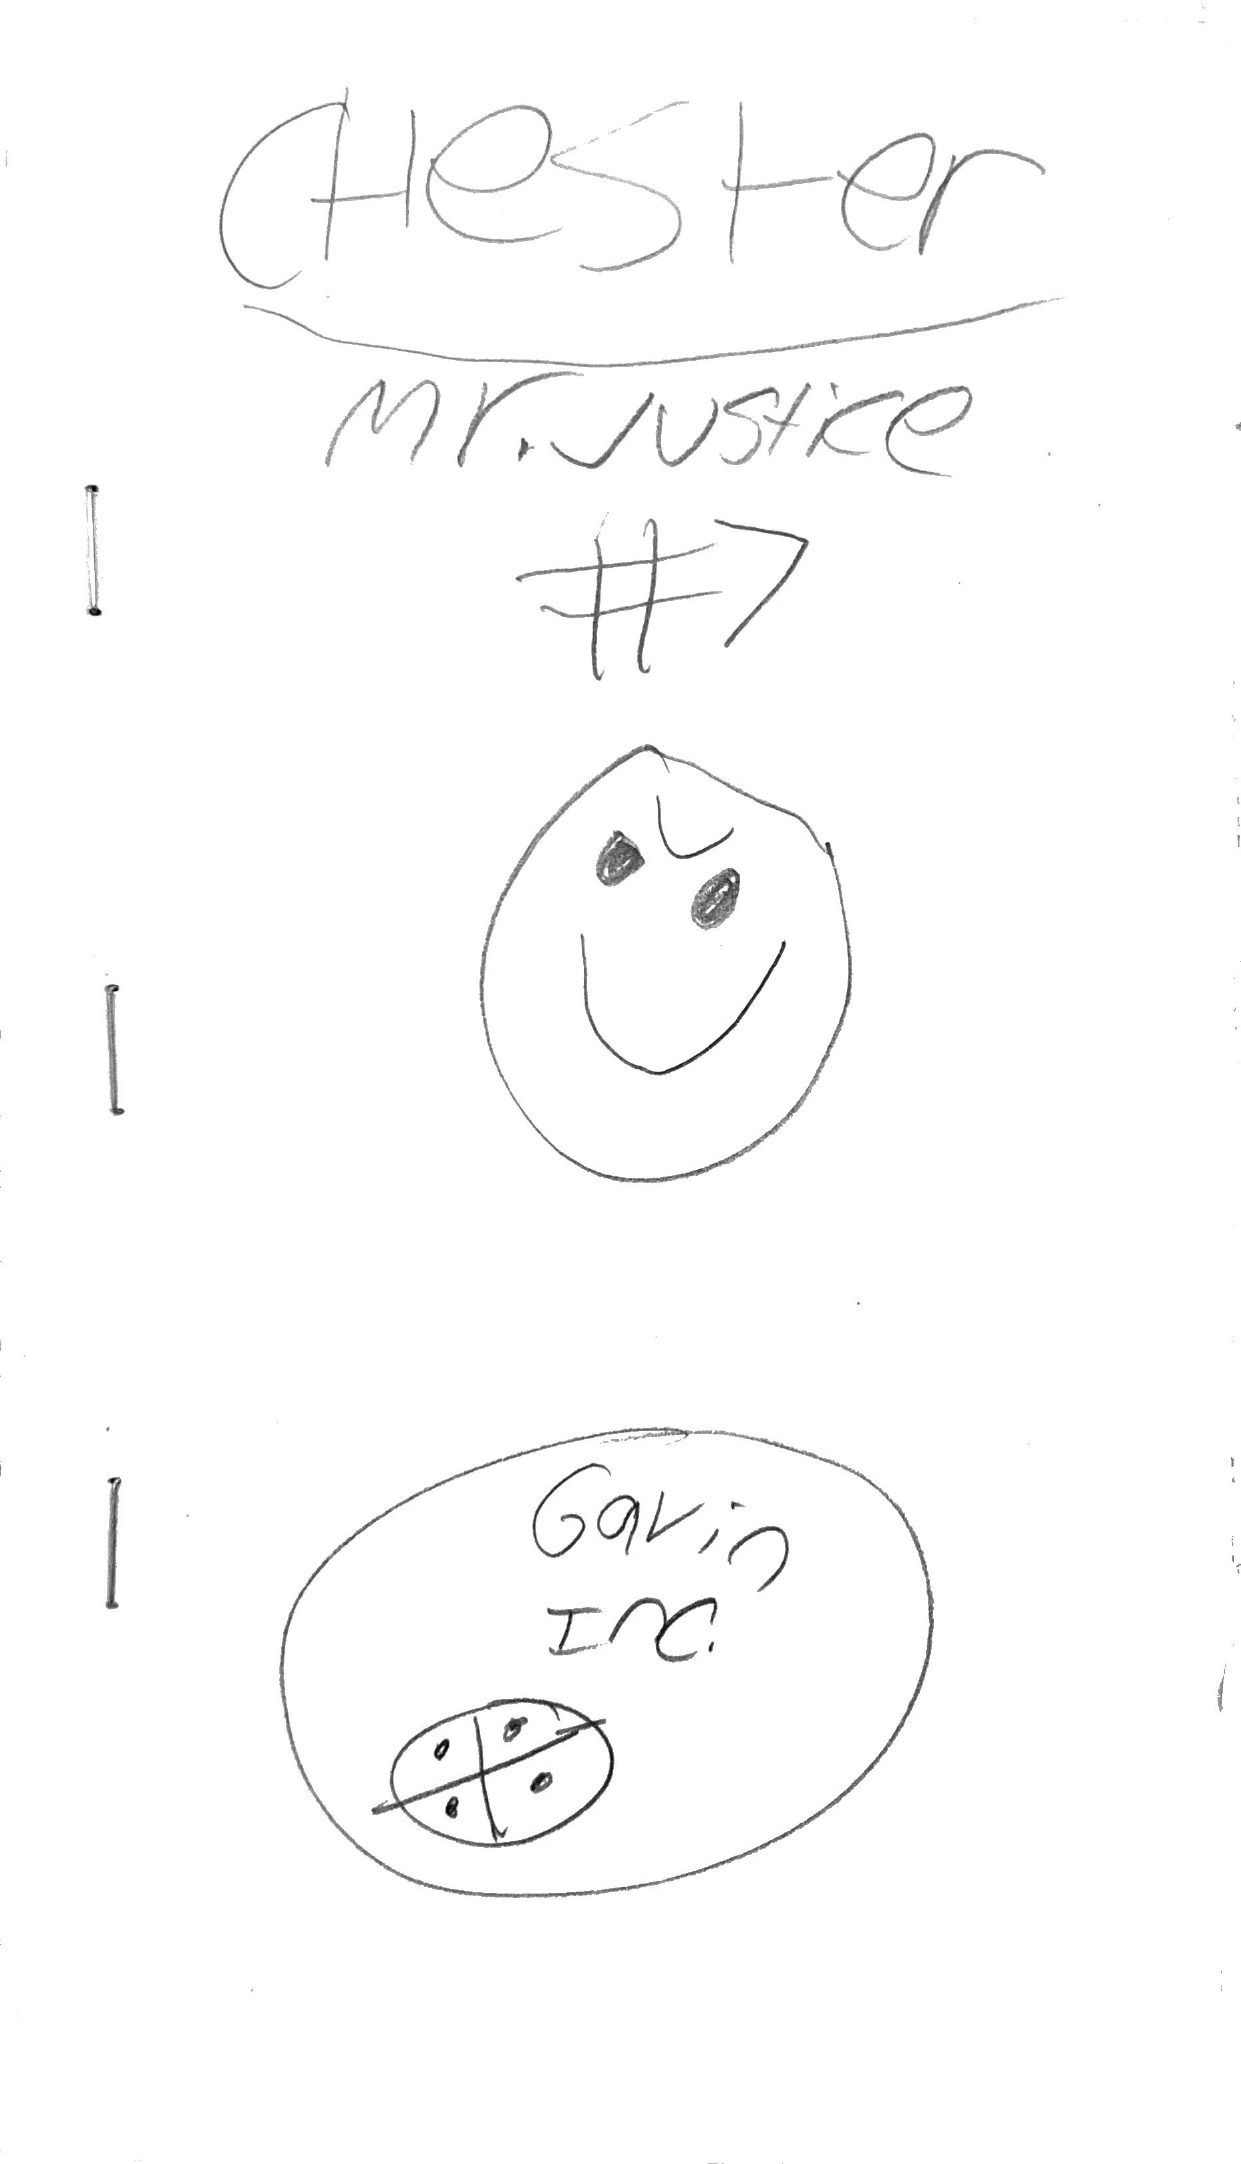 CHester
Mr. Justice
#7
Gavin
Inc.